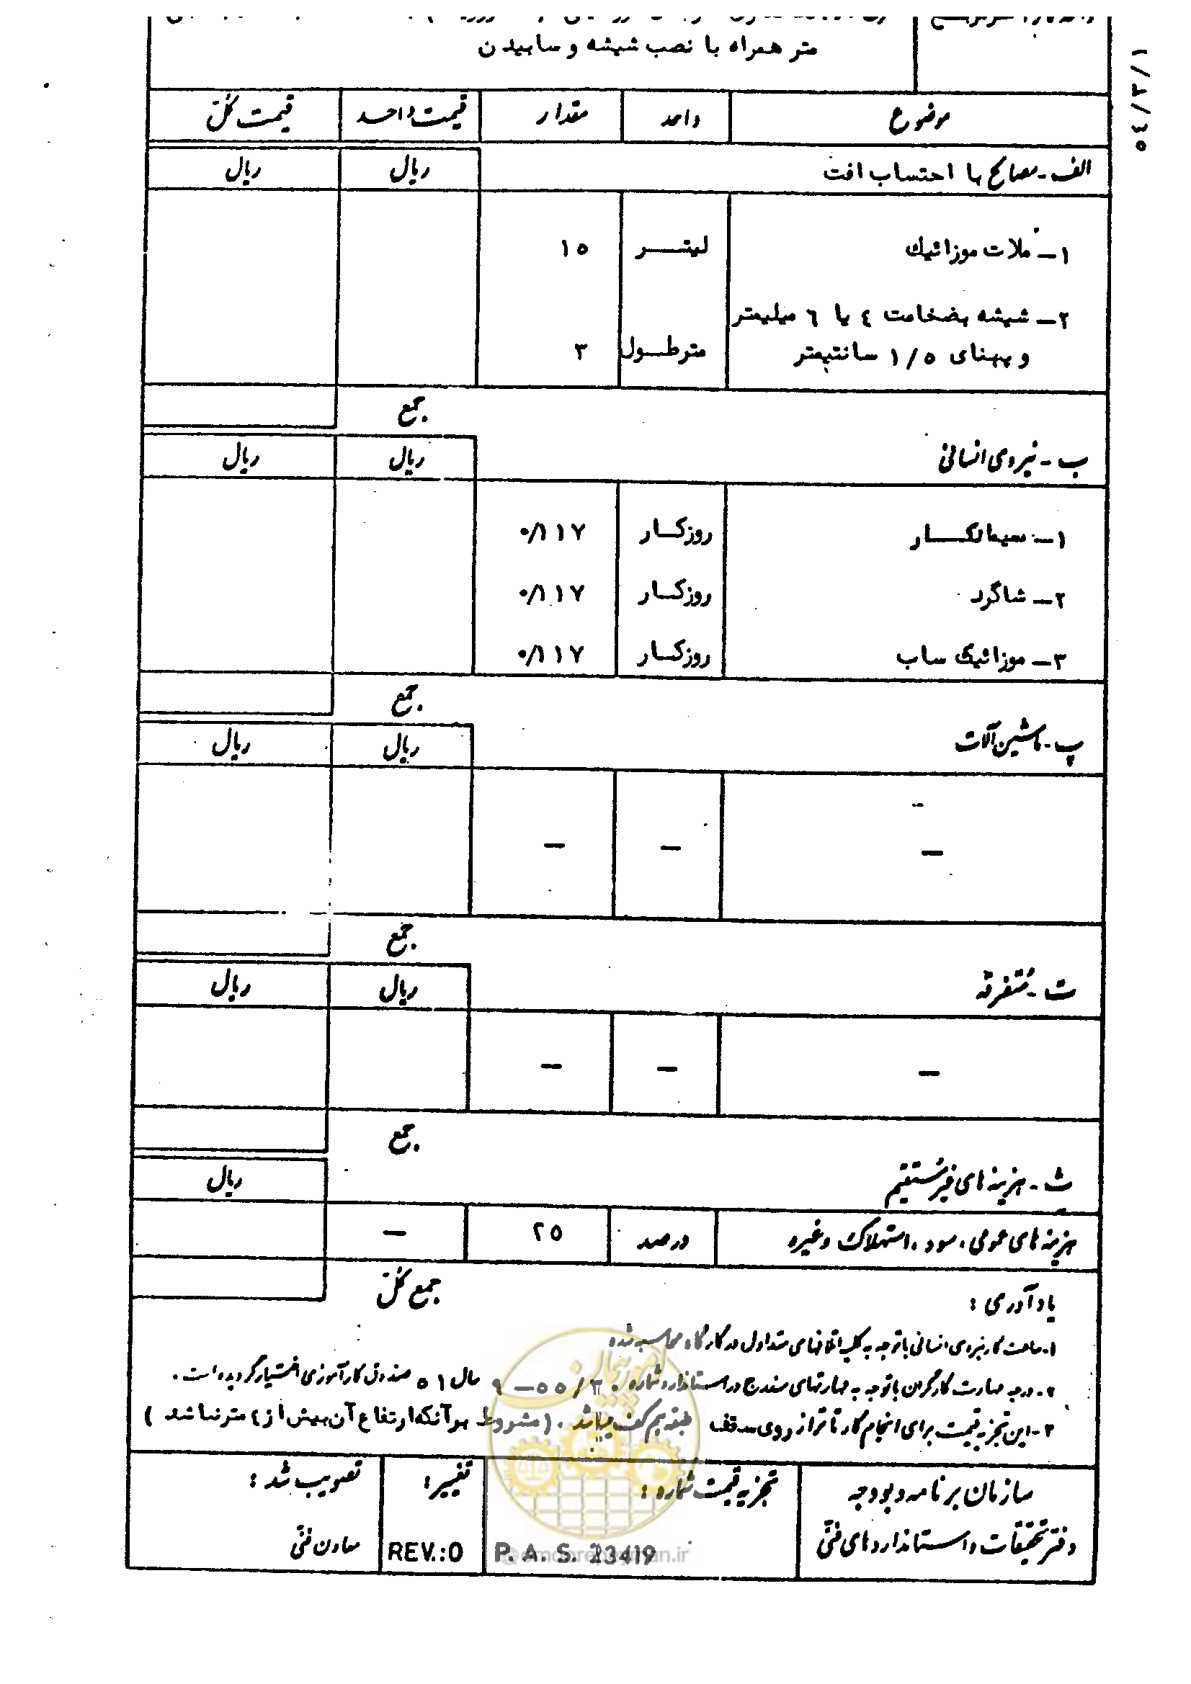 متر همراه با نصب شیشه و سابیدن
۱/۳/٤٥
موضوع واحد مقدار قیمت واحد قیمت کل
الف - مصالح با احتساب افت ریال ریال
۱ – ملات موزائیک لیتر ۱٥
۲ – شیشه بضخامت ٤ یا ٦ میلیمتر
و پهنای ۱/٥ سانتیمتر مترطول ۳
جمع
ب - نیروی انسانی ریال ریال
۱ – سیمانکار روزکار ۰/۱۱۷
۲ – شاگرد روزکار ۰/۱۱۷
۳ – موزائیک ساب روزکار ۰/۱۱۷
جمع
پ - ماشین آلات ریال ریال
– – –
جمع
ت - متفرقه ریال ریال
– – –
جمع
ث - هزینه های غیرمستقیم ریال
هزینه های عمومی، سود، استهلاک وغیره درصد ۲٥ –
جمع کل
یادآوری :
۱- ساعت کار نیروی انسانی با توجه به کلیه اتلافهای متداول در کارگاه محاسبه شده
۲- درجه مهارت کارگران با توجه به مهارتهای مندرج در استاندارد شماره ۹ – ٥٥/۲۰ سال ٥۱ صندوق کارآموزی اختیار گردیده است .
۳- این تجزیه قیمت برای انجام کار تا تراز روی سقف طبقه هم کف میباشد . (مشروط بر آنکه ارتفاع آن بیش از ٤ متر نباشد )
سازمان برنامه و بودجه
دفتر تحقیقات و استانداردهای فنی
تجزیه قیمت شماره :
P. A. S. 23419
تغییر :
REV.:0
تصویب شد :
معاون فنی